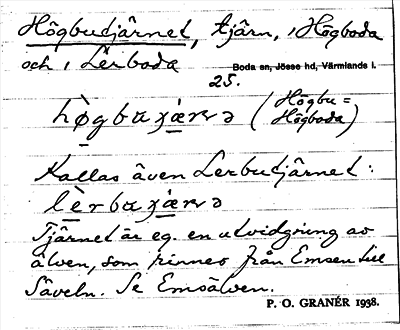 Högbutjärnet, tjärn, i Högboda
och i Lerboda Boda sn, Jösse hd, Värmlands l.
25.
hø̀gbɷҳæ̀rnə (Högbu =
Högboda)
Kallas även Lerbutjärnet:
lèrbɷҳæ̀rnə
Tjärnet är eg. en utvidgning av
älven, som rinner från Emsen till
Säveln. Se Emsälven.
P. O. GRANÉR 1938.